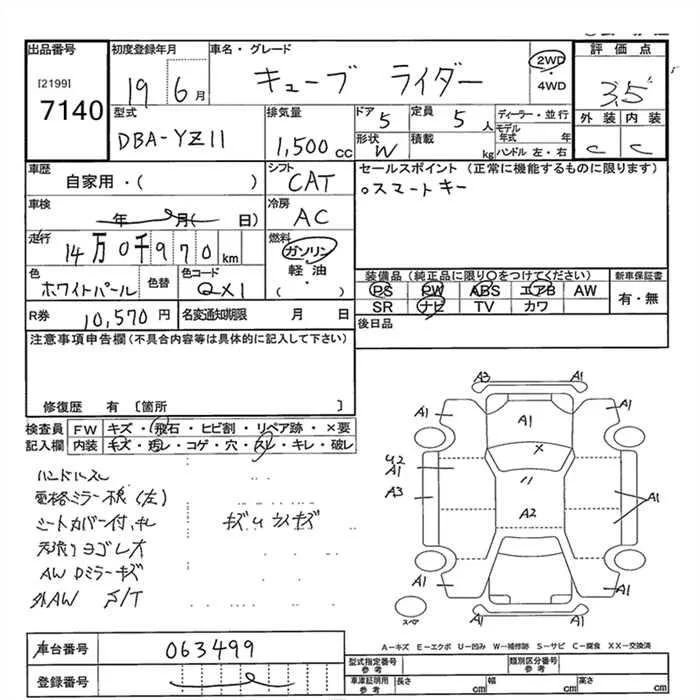 出品番号
[2199]
7140
初度登録年月
19 6月
車名・グレード
キューブ ライダー
2WD
・
4WD
評価点
3.5
外装 内装
C C
型式
DBA-YZ11
排気量
1,500cc
ドア 5
定員 5人
形状 W
積載 kg
ディーラー・並行
モデル年式 年
ハンドル 左・右
車歴
自家用・( )
シフト
CAT
セールスポイント (正常に機能するものに限ります)
○スマートキー
車検
年 月( 日)
冷房
AC
走行
14万0千970km
燃料
ガソリン・
軽油・
( )
色
ホワイトパール
色替
色コード
QX1
装備品 (純正品に限り○をつけてください)
PS PW ABS エアB AW
SR ナビ TV カワ
新車保証書
有・無
R券 10,570円
名変通知期限 月 日
後日品
注意事項申告欄(不具合内容等は具体的に記入して下さい)
修復歴 有 〔箇所 〕
検査員
記入欄
FW キズ・飛石・ヒビ割・リペア跡・×要
内装 キズ・汚レ・コゲ・穴・スレ・キレ・破レ
ハンドルスレ
電格ミラー不良(左)
シートカバー付、キレ
キズ
天張りヨゴレ大
AW Dミラーキズ
社外AW S/T
A3 A1
A1 A1 A1
U2
A1
A3
A2
A1
A1 A1
A1
スペア
A−キズ E−エクボ U−凹み W−補修跡 S−サビ C−腐食 XX−交換済
車台番号 063499
登録番号
型式指定番号
参考
類別区分番号
参考
車津証明用
参考
長さ cm
幅 cm
高さ cm